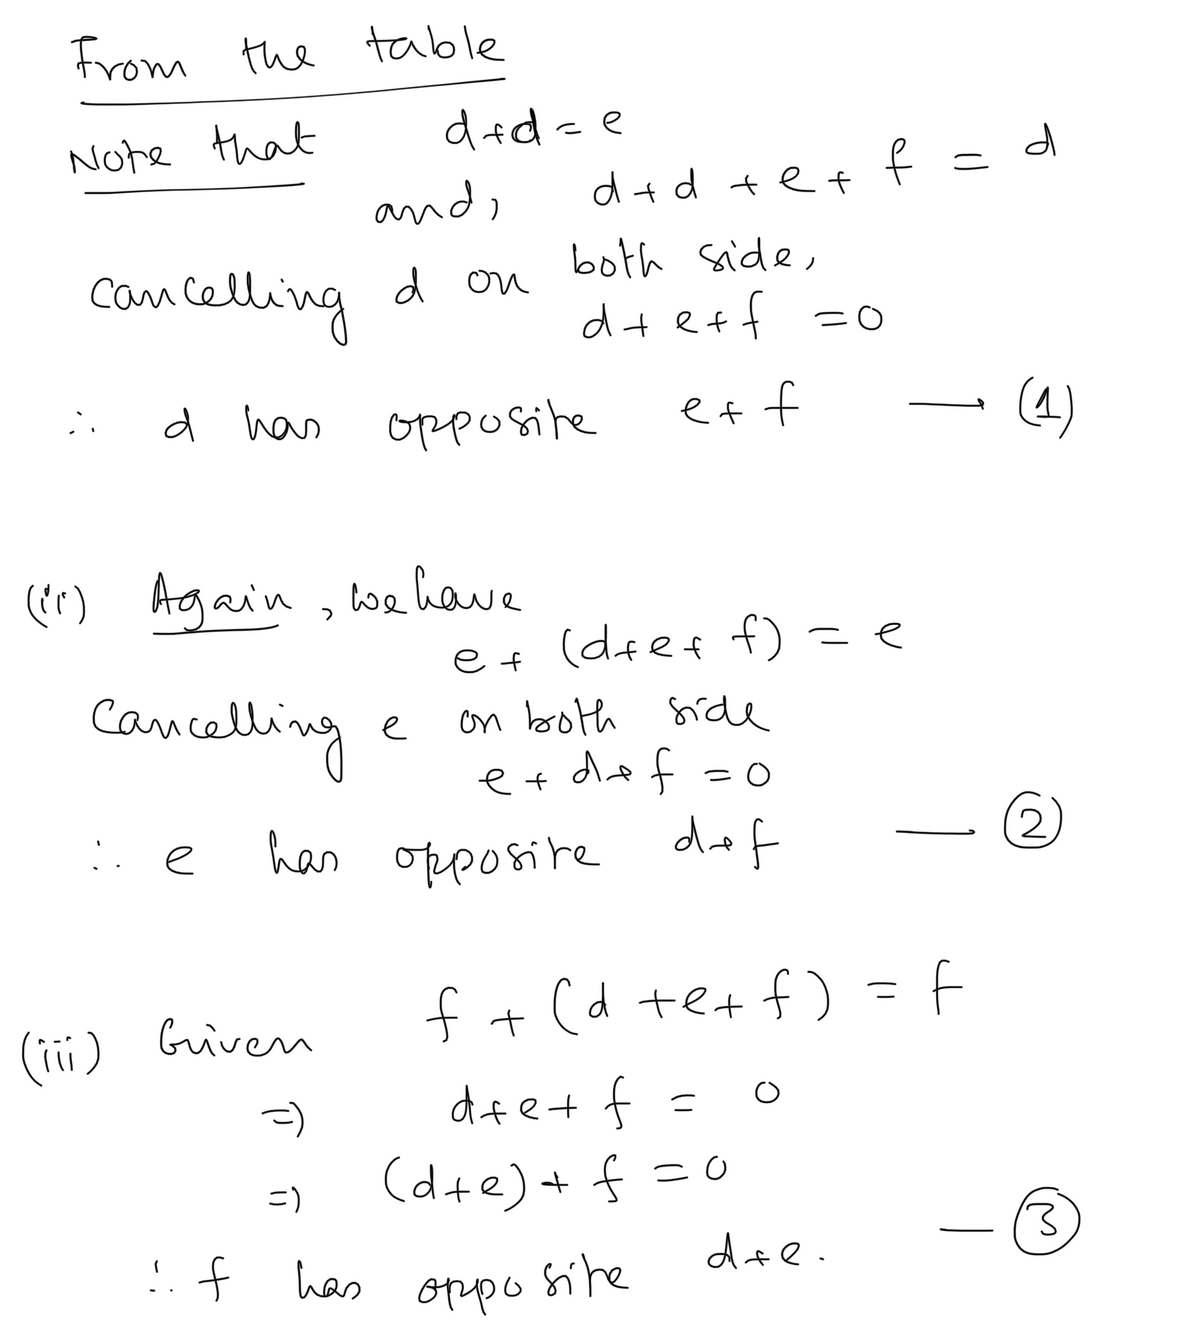 From the table
Note that d+d = e
and, d+d +e+ f = d
cancelling d on both side,
d+ e+f =0
∴ d has opposite e+f — (1)
(ii) Again, we have
e+ (d+e+ f) = e
Cancelling e on both side
e+d+f =0
∴ e has opposite d+f — ②
(iii) Given f + (d +e+ f) = f
=) d+e+ f = 0
=) (d+e)+ f =0
∴ f has opposite d+e. — ③